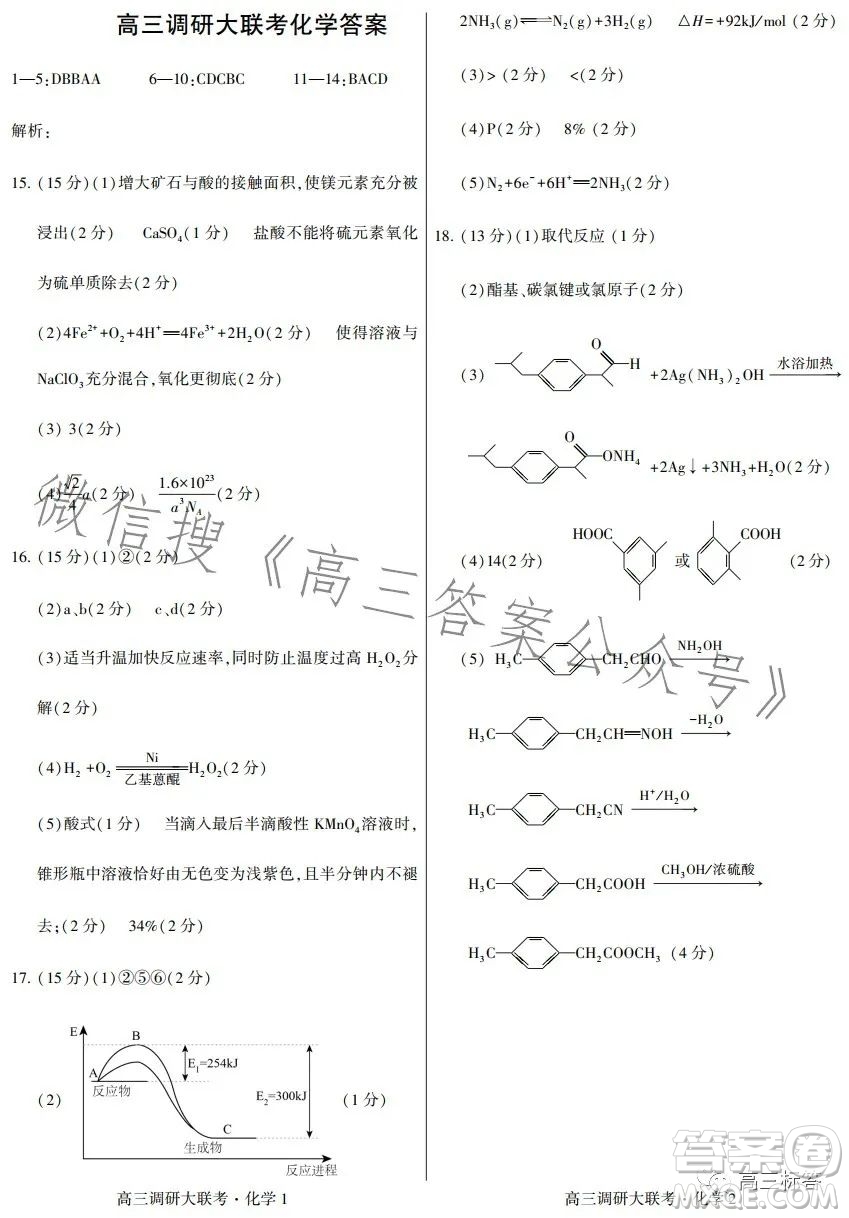 高三调研大联考化学答案
1—5:DBBAA 6—10:CDCBC 11—14:BACD
解析:
15. (15 分)(1)增大矿石与酸的接触面积,使镁元素充分被
浸出(2 分) CaSO₄(1 分) 盐酸不能将硫元素氧化
为硫单质除去(2 分)
(2)4Fe²⁺+O₂+4H⁺═4Fe³⁺+2H₂O(2 分) 使得溶液与
NaClO₃充分混合,氧化更彻底(2 分)
(3) 3(2 分)
(4)√2/4 a(2 分) 1.6×10²³/a³N_A(2 分)
16. (15 分)(1)②(2 分)
(2)a、b(2 分) c、d(2 分)
(3)适当升温加快反应速率,同时防止温度过高 H₂O₂分
解(2 分)
(4)H₂ +O₂ Ni H₂O₂(2 分)
乙基蒽醌
(5)酸式(1 分) 当滴入最后半滴酸性 KMnO₄溶液时,
锥形瓶中溶液恰好由无色变为浅紫色,且半分钟内不褪
去;(2 分) 34%(2 分)
17. (15 分)(1)②⑤⑥(2 分)
E
B
A
E₁=254kJ
反应物
(2)
E₂=300kJ
(1 分)
C
生成物
反应进程
高三调研大联考·化学 1
2NH₃(g)⇌N₂(g)+3H₂(g) △H=+92kJ/mol (2 分)
(3)> (2 分) <(2 分)
(4)P(2 分) 8% (2 分)
(5)N₂+6e⁻+6H⁺═2NH₃(2 分)
18. (13 分)(1)取代反应 (1 分)
(2)酯基、碳氯键或氯原子(2 分)
(3) O H +2Ag(NH₃)₂OH 水浴加热
O ONH₄ +2Ag↓+3NH₃+H₂O(2 分)
(4)14(2 分) HOOC 或 COOH (2 分)
(5) H₃C CH₂CHO NH₂OH
H₃C CH₂CH═NOH −H₂O
H₃C CH₂CN H⁺/H₂O
H₃C CH₂COOH CH₃OH/浓硫酸
H₃C CH₂COOCH₃ (4 分)
高三调研大联考·化学 2
微信搜《高三答案公众号》
答案卷
高三标答
MXQE.COM